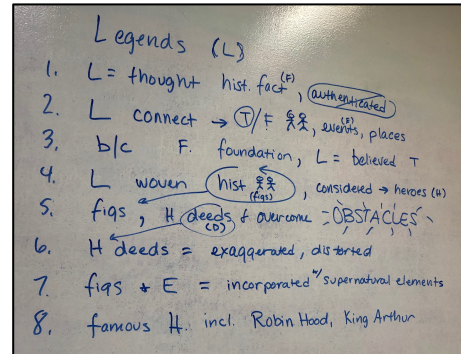 Legends (L)
1. L = thought hist. fact (F), authenticated
2. L connect → T/F, events (E), places
3. b/c F. foundation, L = believed T
4. L woven hist (figs), considered → heroes (H)
5. figs, H deeds (D) & overcome OBSTACLES
6. H deeds = exaggerated, distorted
7. figs + E = incorporated w/ supernatural elements
8. famous H. incl. Robin Hood, King Arthur